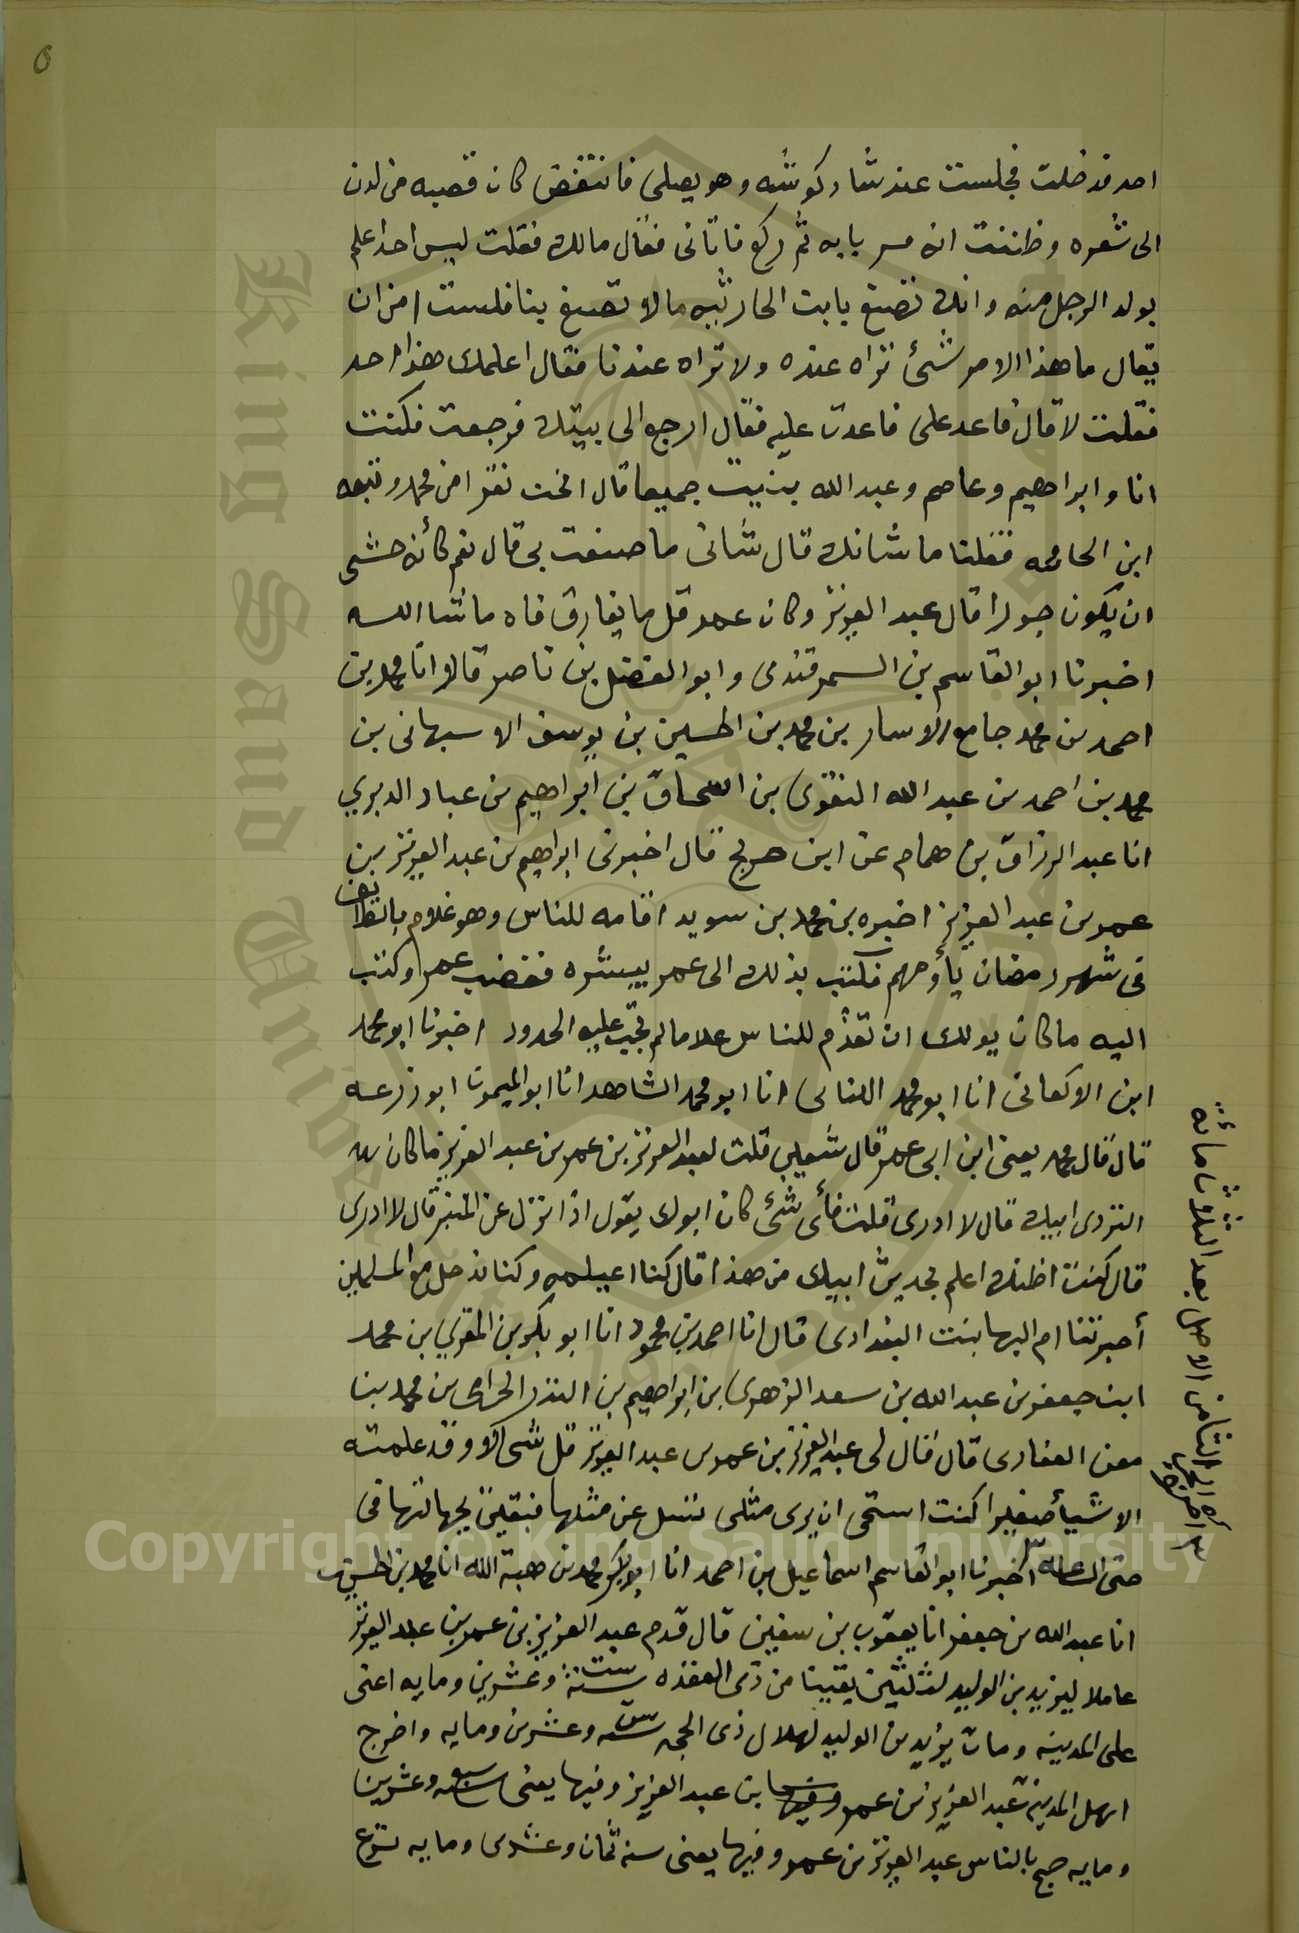 احد فدخلت فجلست عند شاذكونته وهو يصلي فانتفض كان قصبه من لدن
الى شعره وظننت انه مر بابه ثم ركع فاتانى فقال مالك فقلت ليس احد اعلم
بولد الرجل منه وانك تصنع بابت الحارثيه مالا تصنع بنا فلست امن ان
يقال ما هذا الامر شئ تراه عنده ولا تراه عندنا فقال اعلمك هذا احد
فقلت لا قال فاعد على فاعدت عليه فقال ارجع الى بيتك فرجعت فكنت
انا وابراهيم وعاصم وعبد الله بنيت جميعا قال
ابن الحارثيه فقلنا ما شانك قال شانى ما صنعت بى قال نعم كأنه خشى
ان يكون جورا قال عبد العزيز وكان عمر قل ما يفارق فاه ما شا الله
اخبرنا ابو القاسم بن السمرقندى وابو الفضل بن ناصر قالا انا محمد بن
احمد بن محمد جامع الاسار بن محمد بن الحسين بن يوسف الاسبهانى بن
محمد بن احمد بن عبد الله النقوى بن اسحاق بن ابراهيم بن عباد الدبري
انا عبد الرزاق بن همام عن ابن جريج قال اخبرنى ابراهيم بن عبد العزيز بن
عمر بن عبد العزيز اخبره بن محمد بن سويد اقامه للناس وهو غلام بالطايف
فى شهر رمضان يأومهم فكتب بذلك الى عمر يبشره فغضب عمر وكتب
اليه ما كان يولك ان تقدم للناس علاما لم تجب عليه الحدود اخبرنا ابو محمد
ابن الاكفانى انا ابو محمد الكنانى انا ابو محمد الشاهد انا ابو الميمون ابو زرعه
قال قال محمد يعنى ابن ابى عمر قال شعيب قلت لعبد العزيز بن عمر بن عبد العزيز ما كان
ابيك قال لا ادرى قلت فأى شئ كان ابوك يقول اذا نزل عن المنبر قال لا ادرى
قال كنت اظنك اعلم بحديث ابيك من هذا قال كنا اعيلمه وكنا ندخل مع المسلمين
أخبرتنا ام البها بنت البغدادى قال انا احمد بن محمود انا ابو بكر بن المقرى بن محمد
ابن جعفر بن عبد الله بن سعد الزهرى بن ابراهيم بن المنذر الحزامى بن محمد بنا
معن الغفارى قال قال لى عبد العزيز بن عمر بن عبد العزيز قل شى الا وقد علمته
الا شيأ صغيرا كنت استحى ان يرى مثلى نسل عن مثلها فبقيت جهالتها فى
حتى الساعة اخبرنا ابو القاسم اسماعيل بن احمد انا ابو بكر محمد بن هبة الله انا محمد بن الحسين
انا عبد الله بن جعفر انا يعقوب بن سفين قال قدم عبد العزيز بن عمر بن عبد العزيز
عاملا ليزيد بن الوليد لثلثين بقينا من ذى القعده سنة ست وعشرين ومايه اعنى
على المدينه ومات يزيد بن الوليد لهلال ذى الحجه سنه ست وعشرين ومايه واخرج
اهل المدينة عبد العزيز بن عمر وفيها بن عبد العزيز وفيها يعنى سنه سبع وعشرين
ومايه حج بالناس عبد العزيز بن عمر وفيها يعنى سنه ثمان وعشرين ومايه نزع
اخر الجزء الثامن الاوصل بعد الثلاث مائة
Copyright © King Saud University
King Saud University
٥